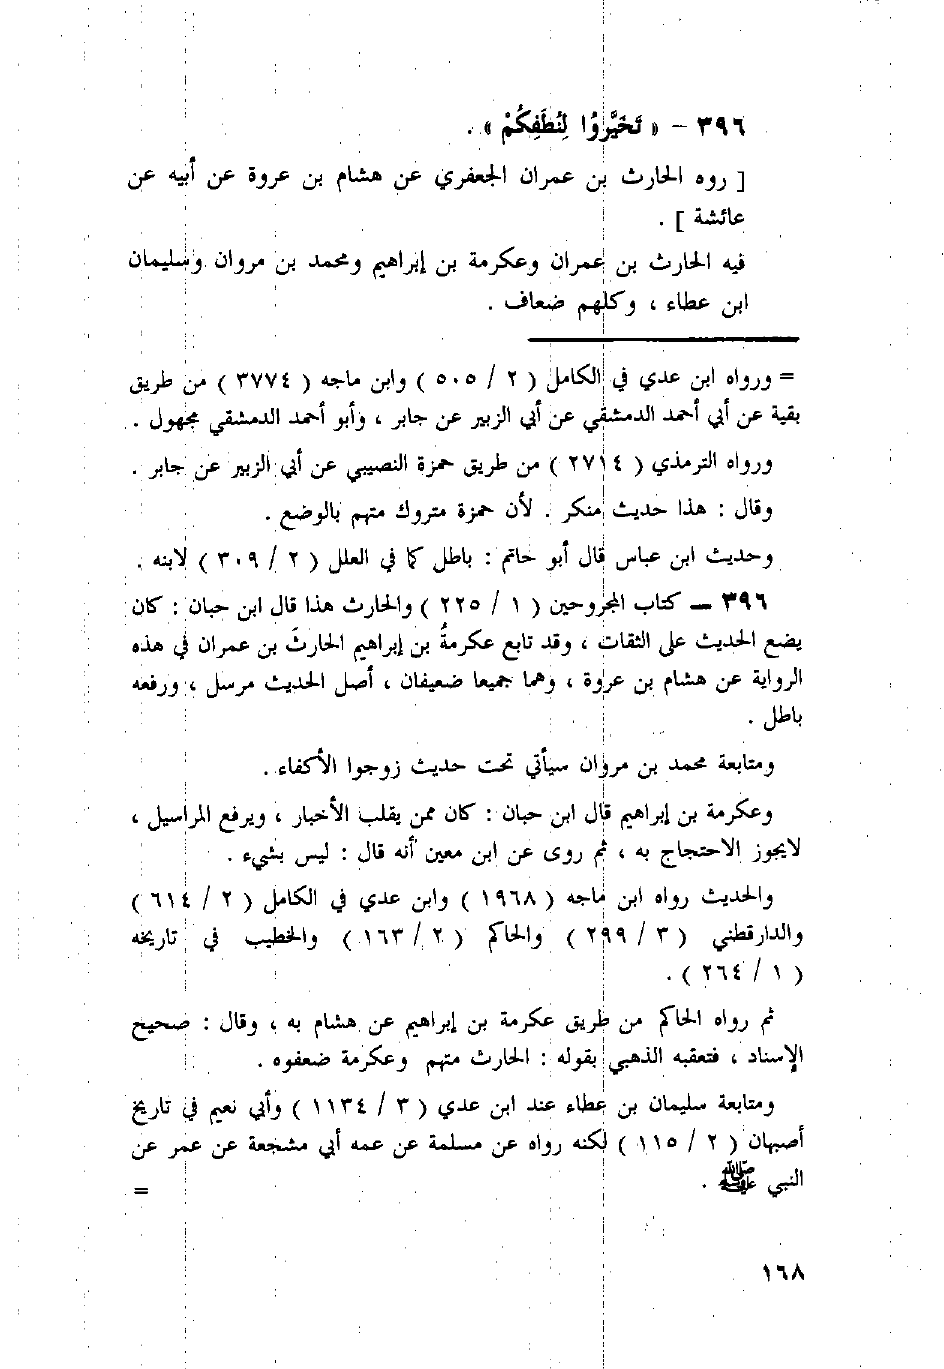 ٣٩٦ – « تَخَيَّرُوُا لِنُطَفِكُمْ » .
[ روه الحارث بن عمران الجعفري عن هشام بن عروة عن أبيه عن
عائشة ] .
فيه الحارث بن عمران وعكرمة بن إبراهيم ومحمد بن مروان وسليمان
ابن عطاء ، وكلهم ضعاف .
= ورواه ابن عدي في الكامل ( ٢ / ٥٠٥ ) وابن ماجه ( ٣٧٧٤ ) من طريق
بقية عن أبي أحمد الدمشقي عن أبي الزبير عن جابر ، وأبو أحمد الدمشقي مجهول .
ورواه الترمذي ( ٢٧١٤ ) من طريق حمزة النصيبي عن أبي الزبير عن جابر .
وقال : هذا حديث منكر . لأن حمزة متروك متهم بالوضع .
وحديث ابن عباس قال أبو حاتم : باطل كما في العلل ( ٢ / ٣٠٩ ) لابنه .
٣٩٦ – كتاب المجروحين ( ١ / ٢٢٥ ) والحارث هذا قال ابن حبان : كان
يضع الحديث على الثقات ، وقد تابع عكرمةُ بن إبراهيم الحارثَ بن عمران في هذه
الرواية عن هشام بن عروة ، وهما جميعا ضعيفان ، أصل الحديث مرسل ، ورفعه
باطل .
ومتابعة محمد بن مروان سيأتي تحت حديث زوجوا الأكفاء .
وعكرمة بن إبراهيم قال ابن حبان : كان ممن يقلب الأخبار ، ويرفع المراسيل ،
لايجوز الاحتجاج به ، ثم روى عن ابن معين أنه قال : ليس بشيء .
والحديث رواه ابن ماجه ( ١٩٦٨ ) وابن عدي في الكامل ( ٢ / ٦١٤ )
والدارقطني ( ٣ / ٢٩٩ ) والحاكم ( ٢ / ١٦٣ ) والخطيب في تاريخه
( ١ / ٢٦٤ ) .
ثم رواه الحاكم من طريق عكرمة بن إبراهيم عن هشام به ، وقال : صحيح
الإسناد ، فتعقبه الذهبي بقوله : الحارث متهم وعكرمة ضعفوه .
ومتابعة سليمان بن عطاء عند ابن عدي ( ٣ / ١١٣٤ ) وأبي نعيم في تاريخ
أصبهان ( ٢ / ١١٥ ) لكنه رواه عن مسلمة عن عمه أبي مشجعة عن عمر عن
النبي ﷺ .
=
١٦٨